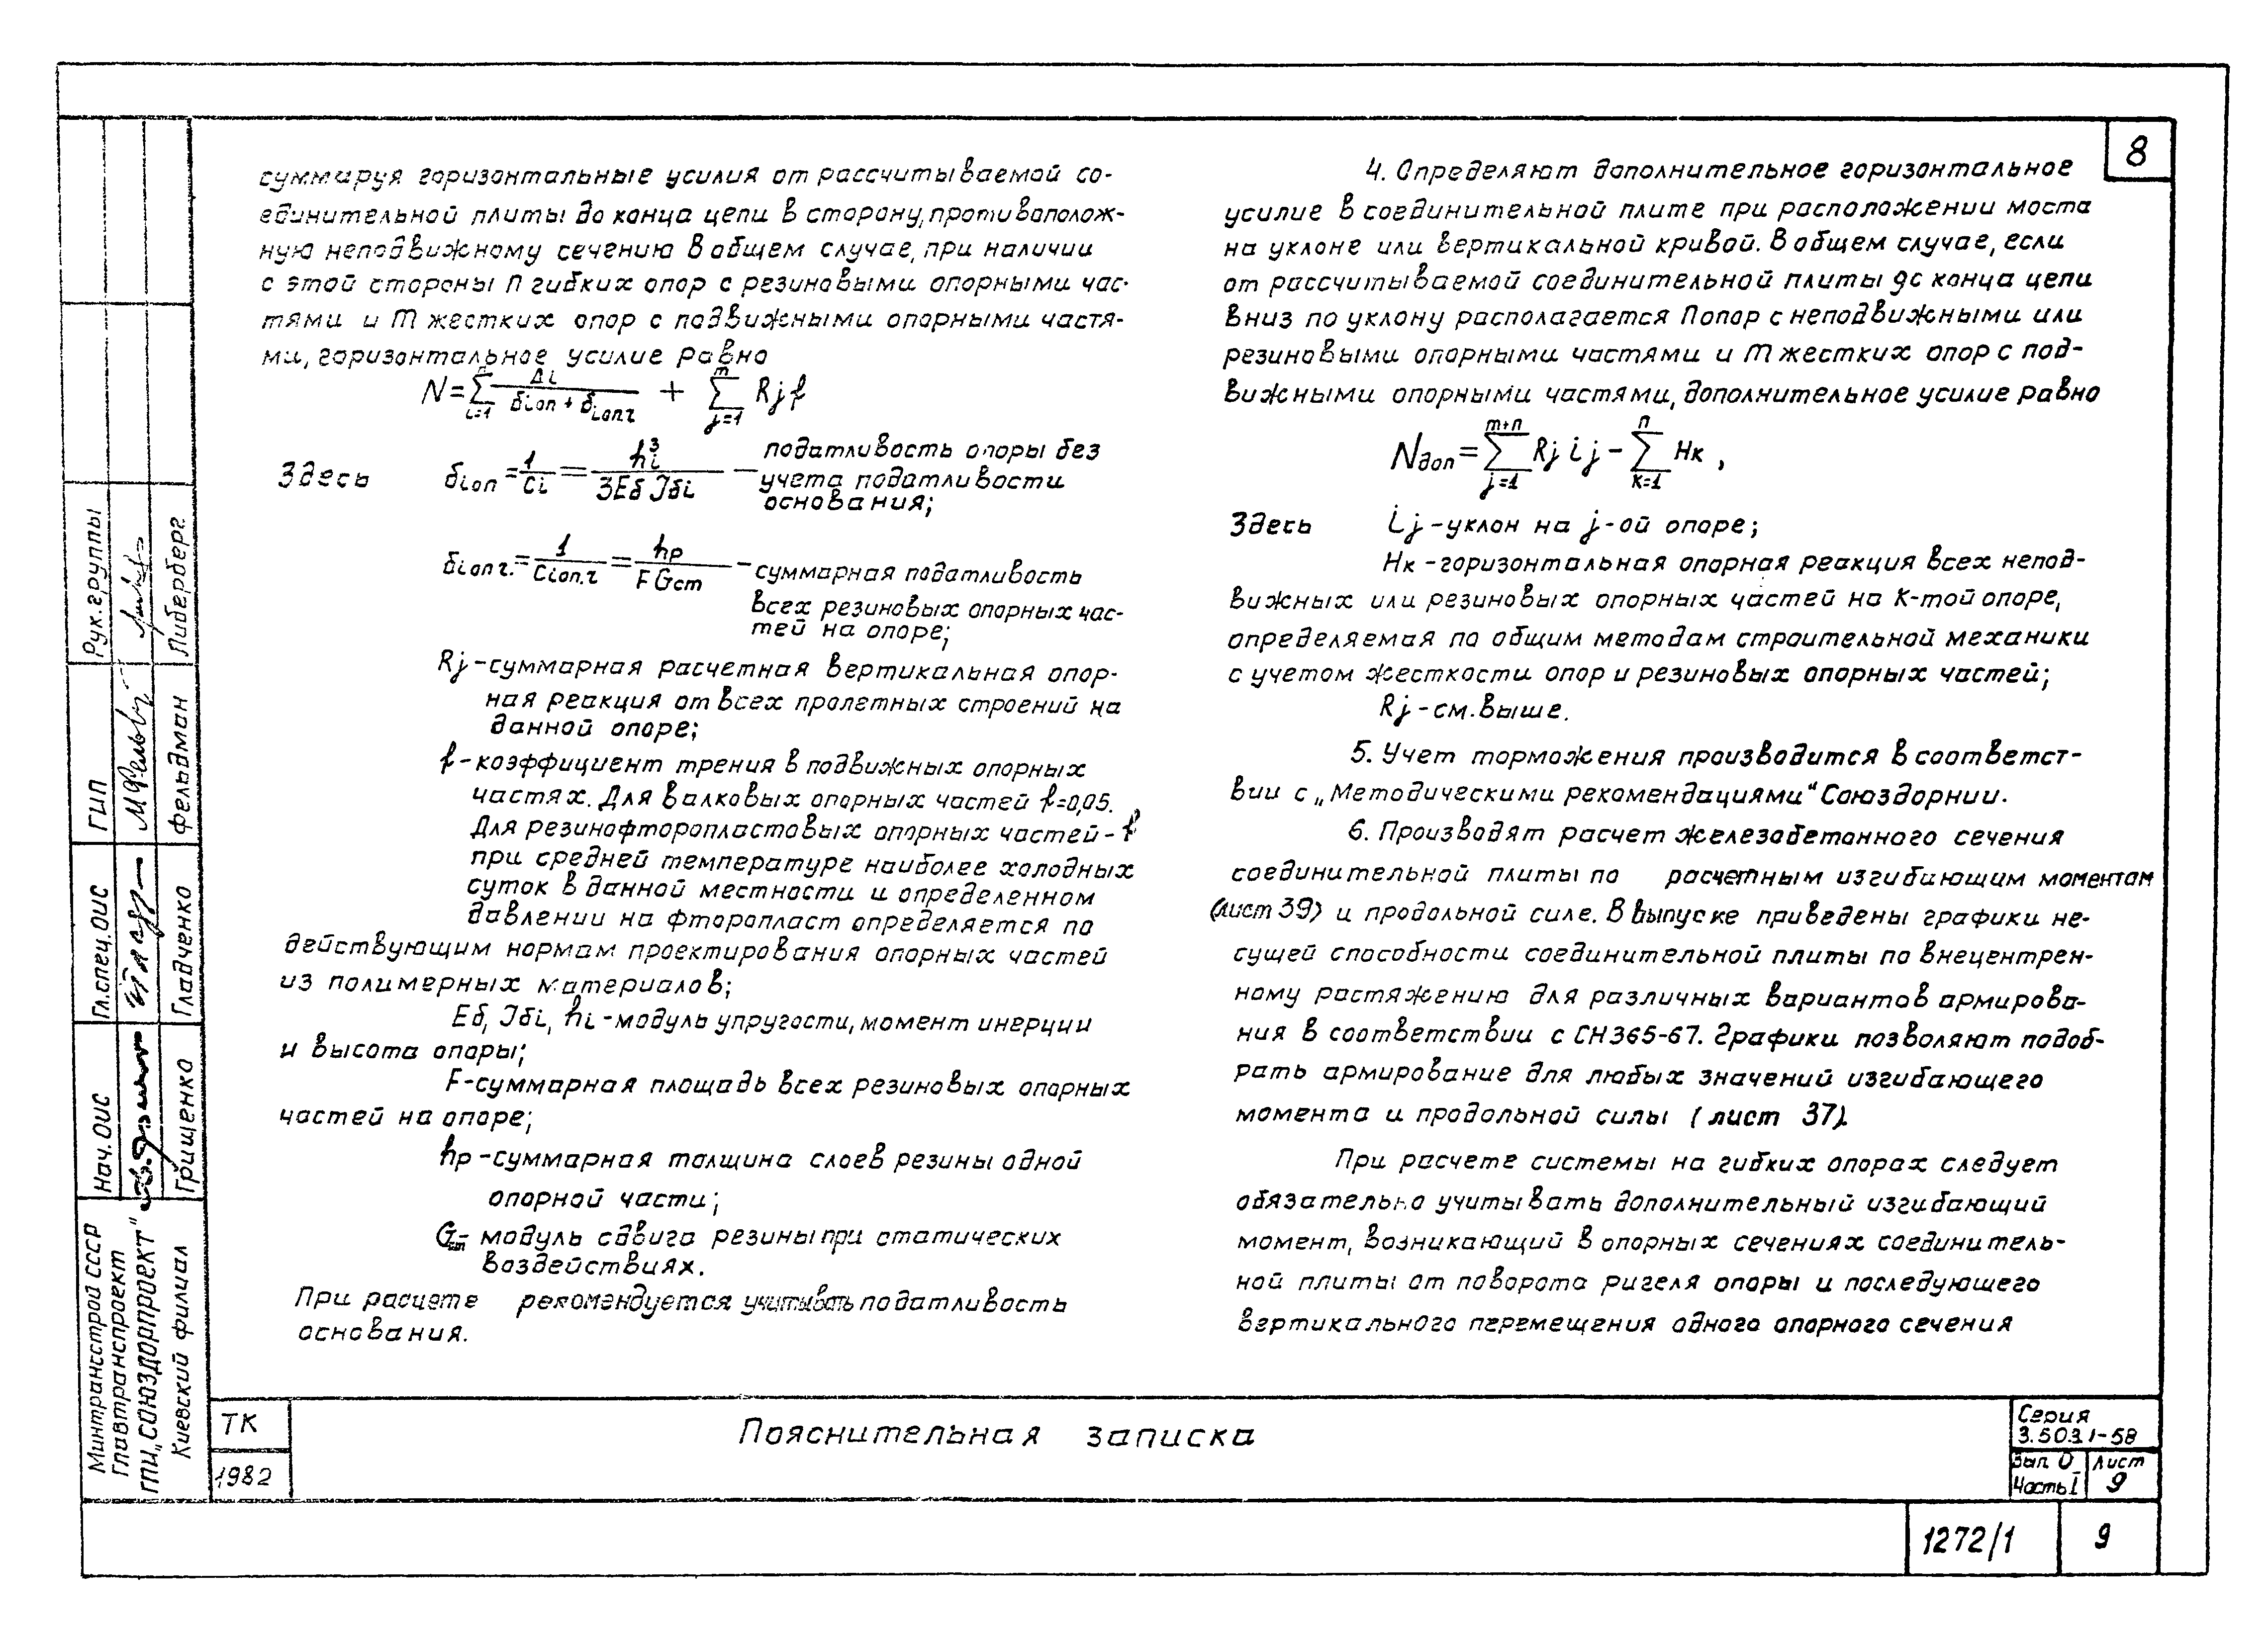 8
суммируя горизонтальные усилия от рассчитываемой со-
единительной плиты до конца цепи в сторону, противополож-
ную неподвижному сечению в общем случае, при наличии
с этой стороны n гибких опор с резиновыми опорными час-
тями и m жестких опор с подвижными опорными частя-
ми, горизонтальное усилие равно
N = Σ(i=1..n) Δi / (δiоп + δiоп.ч) + Σ(j=1..m) Rj f
Здесь δiоп = 1/Ci = hi³ / 3Eб Jбi — податливость опоры без
учета податливости
основания;
δiоп ч. = 1/Ciоп.ч = hр / F Gст — суммарная податливость
всех резиновых опорных час-
тей на опоре;
Rj - суммарная расчетная вертикальная опор-
ная реакция от всех пролетных строений на
данной опоре;
f - коэффициент трения в подвижных опорных
частях. Для валковых опорных частей f=0,05.
Для резинофторопластовых опорных частей - f
при средней температуре наиболее холодных
суток в данной местности и определенном
давлении на фторопласт определяется по
действующим нормам проектирования опорных частей
из полимерных материалов;
Eб, Jбi, hi - модуль упругости, момент инерции
и высота опоры;
F - суммарная площадь всех резиновых опорных
частей на опоре;
hр - суммарная толщина слоев резины одной
опорной части;
Gст - модуль сдвига резины при статических
воздействиях.
При расчете рекомендуется учитывать податливость
основания.
4. Определяют дополнительное горизонтальное
усилие в соединительной плите при расположении моста
на уклоне или вертикальной кривой. В общем случае, если
от рассчитываемой соединительной плиты до конца цепи
вниз по уклону располагается n опор с неподвижными или
резиновыми опорными частями и m жестких опор с под-
вижными опорными частями, дополнительное усилие равно
Nдоп = Σ(j=1..m+n) Rj ij - Σ(к=1..n) Hк ,
Здесь ij - уклон на j-ой опоре;
Hк - горизонтальная опорная реакция всех непод-
вижных или резиновых опорных частей на К-той опоре,
определяемая по общим методам строительной механики
с учетом жесткости опор и резиновых опорных частей;
Rj - см. выше.
5. Учет торможения производится в соответст-
вии с „Методическими рекомендациями" Союздорнии.
6. Производят расчет железобетонного сечения
соединительной плиты по расчетным изгибающим моментам
(лист 39) и продольной силе. В выпуске приведены графики не-
сущей способности соединительной плиты по внецентрен-
ному растяжению для различных вариантов армирова-
ния в соответствии с СН 365-67. Графики позволяют подоб-
рать армирование для любых значений изгибающего
момента и продольной силы (лист 37).
При расчете системы на гибких опорах следует
обязательно учитывать дополнительный изгибающий
момент, возникающий в опорных сечениях соединитель-
ной плиты от поворота ригеля опоры и последующего
вертикального перемещения одного опорного сечения
Рук. группы Либерберг
ГИП Фельдман
Гл. спец. ОИС Гладченко
Нач. ОИС Грищенко
Минтрансстрой СССР
Главтранспроект
ГПИ „Союздорпроект"
Киевский филиал
ТК
1982
Пояснительная записка
Серия
3.503.1-58
Вып. 0
Часть I
Лист
9
1272/1
9